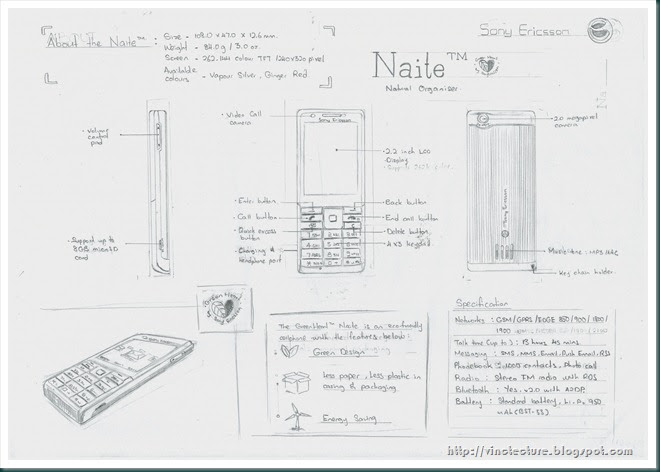 About the Naite™ :
Size - 108.0 x 47.0 x 12.6 mm.
Weight - 84.0g / 3.0 oz.
Screen - 262,144 colour TFT 240x320 pixel
Available colours - Vapour Silver, Ginger Red.
Sony Ericsson
Naite™
Natural Organiser
• Volume
control
pad
• Support up to
8GB microSD
card
• Video Call
camera
Sony Ericsson
• 2.2 inch LCD
Display
• Enter button
• Call button
• Quick access
button
• Charging &
Headphone port
• Back button
• End call button
• Delete button
• 4 x 3 keypad
• 2.0 megapixel
camera
Sony Ericsson
• Key chain holder.
Green Heart
Sony Ericsson
The GreenHeart™ Naite is an eco-friendly
cellphone with the features below:
Green Design
Less paper, Less plastic in
casing & packaging.
Energy Saving
Specification
Networks : GSM/GPRS/EDGE 850/900/1800/
1900
Talk time (up to) : 13 hours 45 mins
Messaging : SMS, MMS, Email, Push Email, RSS
Phonebook : 1000 contacts, Photo call
Radio : Stereo FM radio with RDS
Bluetooth : Yes, v2.0 with A2DP
Battery : Standard battery, Li-Po 950
mAh (BST-33)
http://vinctecture.blogspot.com